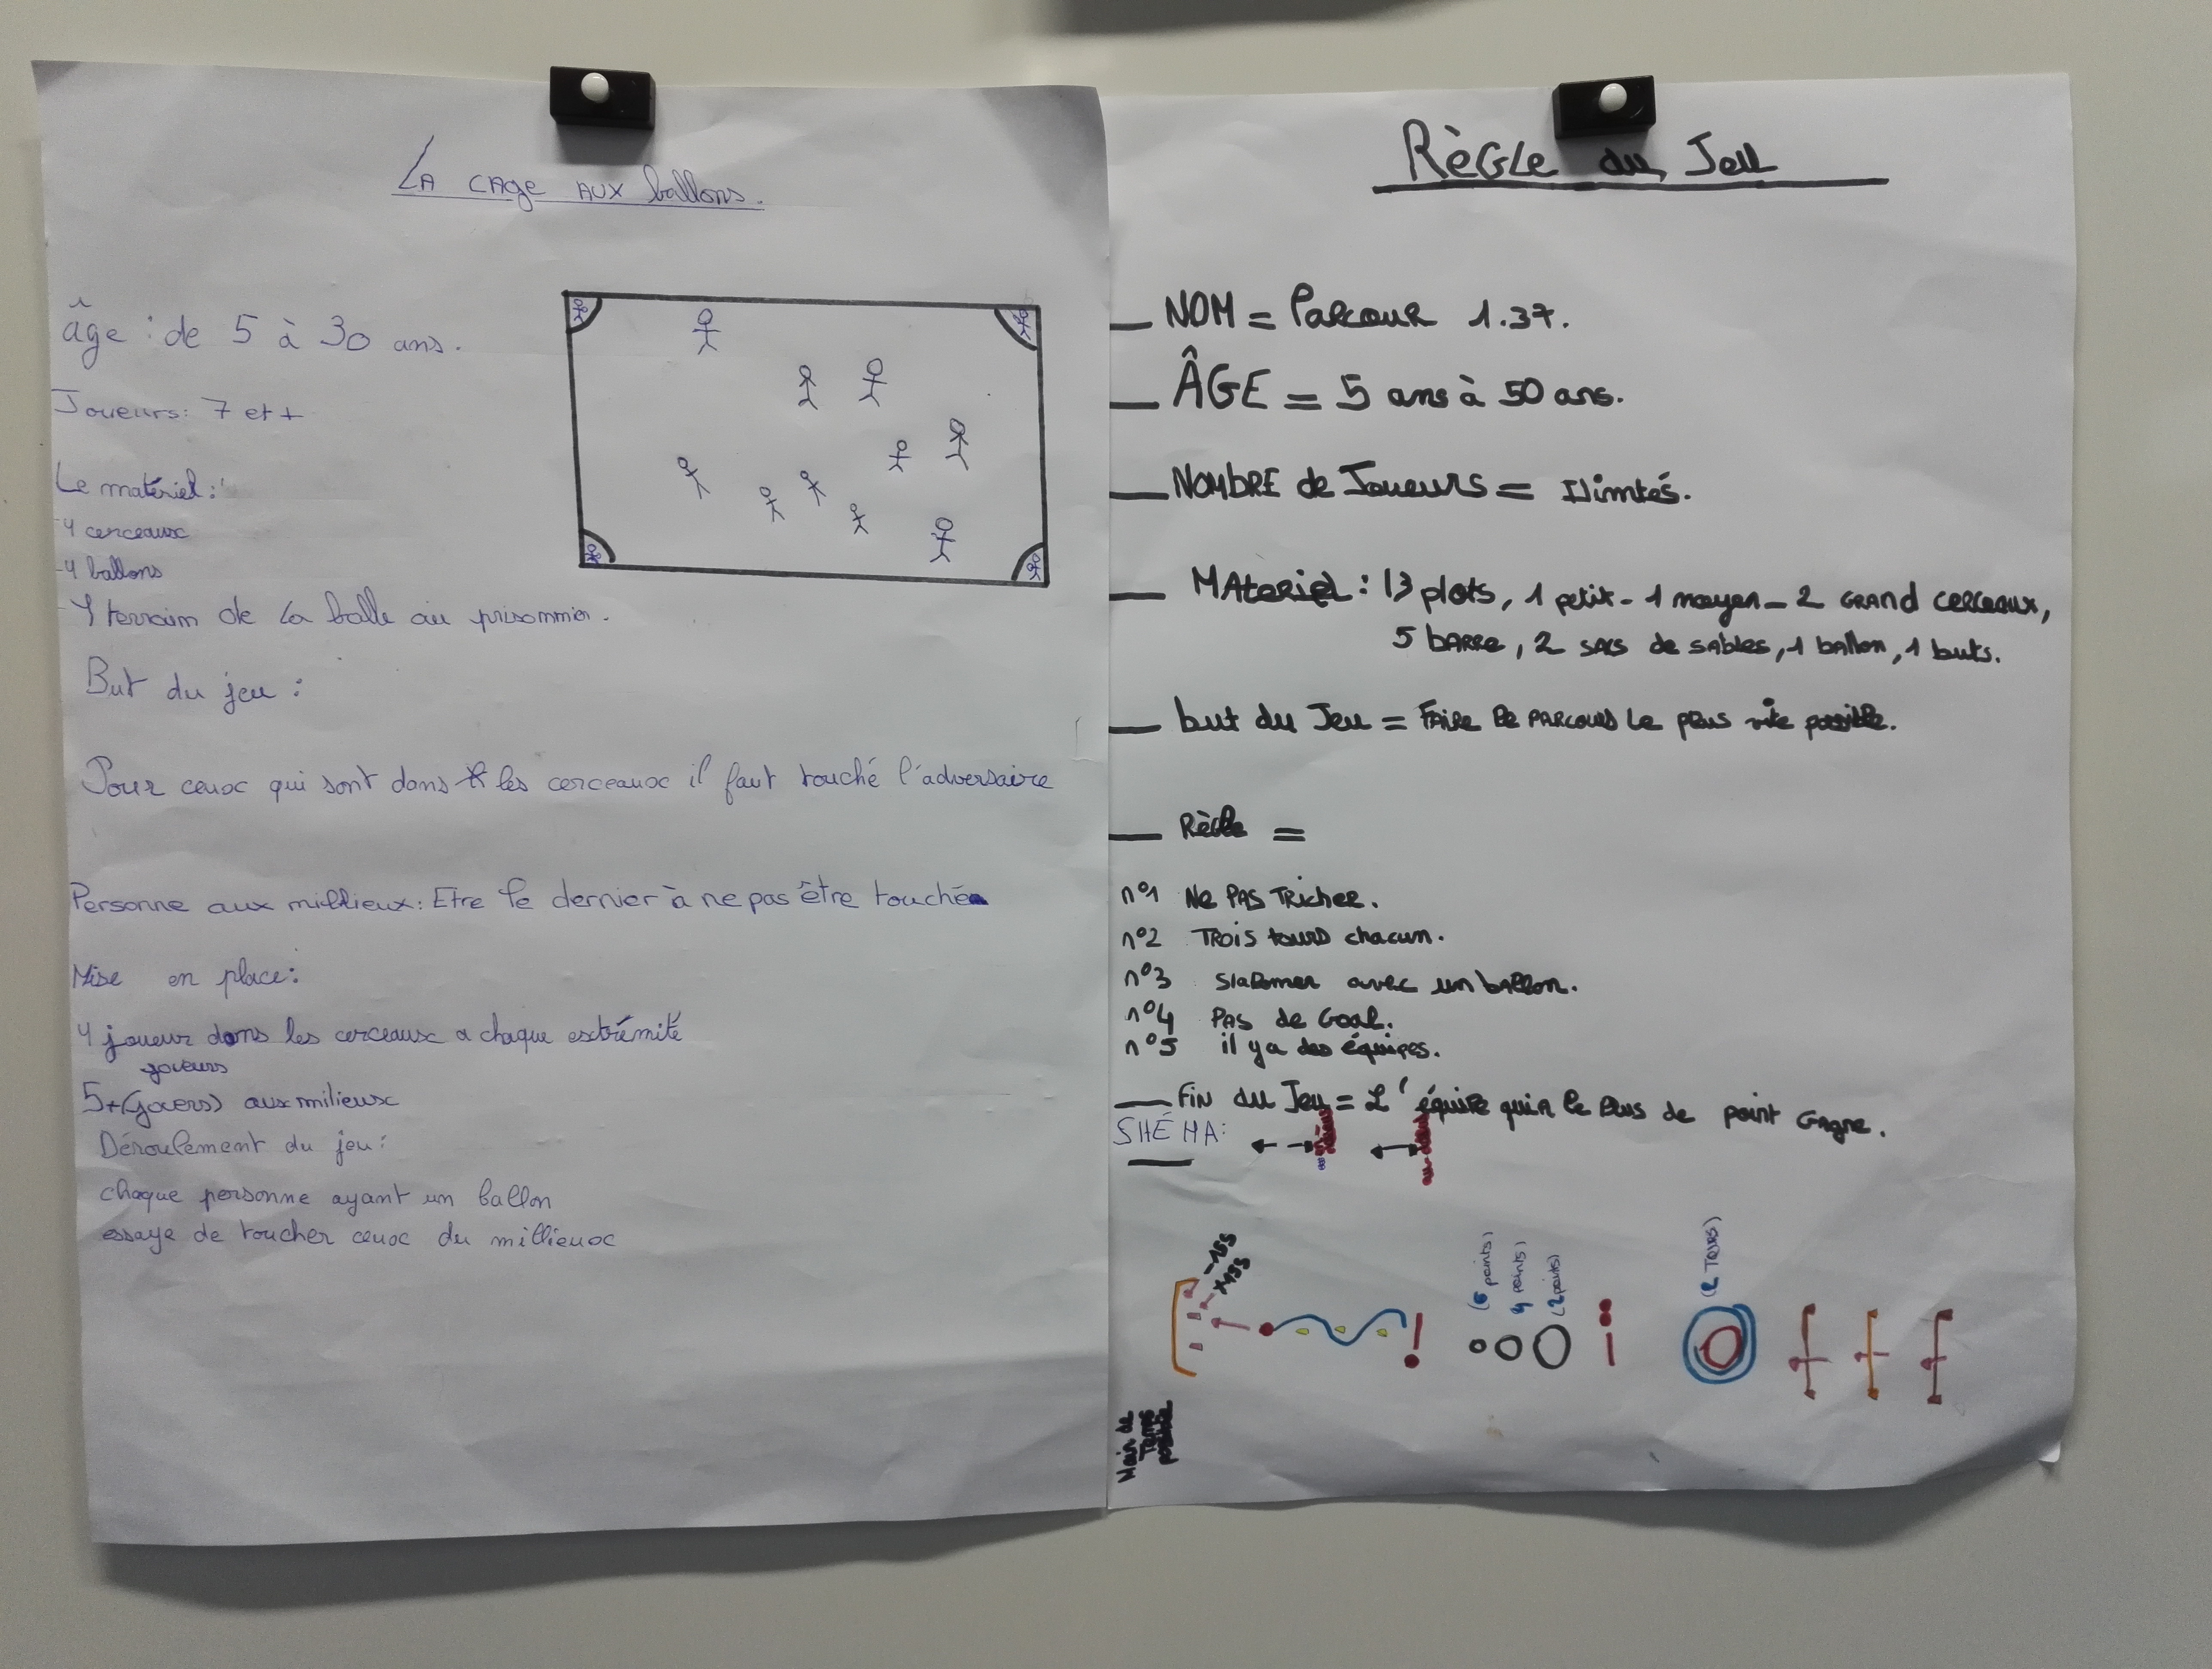 La cage aux ballons.
âge : de 5 à 30 ans.
Joueurs: 7 et +
Le matériel :
-4 cerceaux
-4 ballons
-1 terrain de la balle au prisonnier.
But du jeu :
Pour ceux qui sont dans les cerceaux il faut touché l'adversaire
Personne aux millieux: Etre le dernier à ne pas être touché
Mise en place:
4 joueur dans les cerceaux a chaque extrémité
joueurs
5+(jouers) aux milieux
Déroulement du jeu:
chaque personne ayant un ballon
essaye de toucher ceux du millieux
Règle du Jeu
NOM = Parcour 1.37.
ÂGE = 5 ans à 50 ans.
NOMBRE de Joueurs = Ilimtés.
MAteriel : 13 plots, 1 petit - 1 moyen - 2 GRAND cerceaux,
5 barre, 2 sacs de sables, 1 ballon, 1 buts.
but du Jeu = Faire le parcours le plus vite possible.
Règle =
n°1 Ne pas tricher.
n°2 Trois tours chacun.
n°3 Slalomer avec un ballon.
n°4 Pas de Goal.
n°5 il y a des équipes.
Fin du Jeu = L'équipe qui a le plus de point Gagne.
SHÉMA:
-15s
+15s
(6 points)
4 points)
(2 points)
(2 Tours)